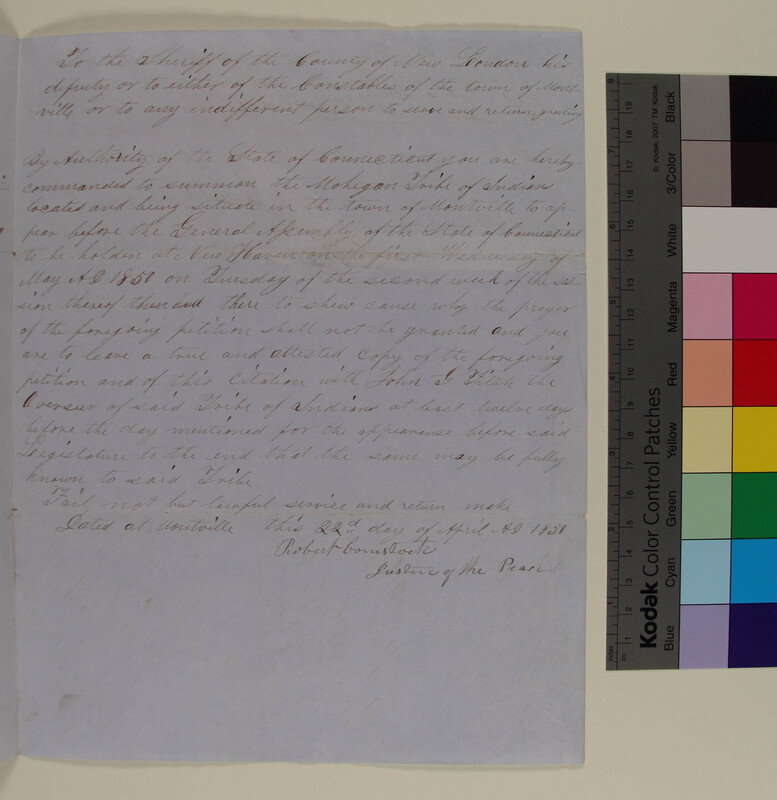 To the Sheriff of the County of New London his
deputy or to either of the Constables of the town of Mont-
ville or to any indifferent person to serve and return, greeting
By Authority of the State of Connecticut you are hereby
commanded to summon the Mohegan Tribe of Indians
located and being situate in the town of Montville to ap-
pear before the General Assembly of the State of Connecticut
to be holden at New Haven on the first Wednesday of
May AD 1850 on Tuesday of the second week of the ses
sion thereof then and there to shew cause why the prayer
of the foregoing petition shall not be granted and you
are to leave a true and attested copy of the foregoing
petition and of this Citation with John G Fitch the
Overseer of said Tribe of Indians at least twelve days
before the day mentioned for the appearance before said
Legislature to the end that the same may be fully
known to said Tribe
Fail not but lawful service and return make
Dated at Montville this 22d day of April AD 1850
Robert Comstock
Justice of the Peace
8 7 6 5 4 3 2 1
19 18 17 16 15 14 13 12 11 10 9 8 7 6 5 4 3 2 1
cm
© Kodak, 2007 TM: Kodak
Kodak Color Control Patches
Blue Cyan Green Yellow Red Magenta White 3/Color Black